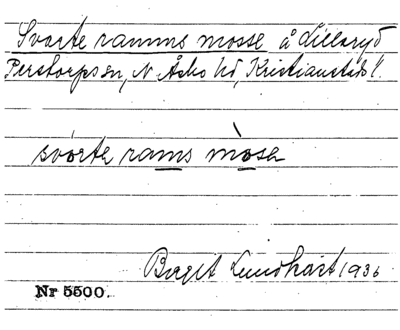 Svarte ramms mosse å Lillaryd
Perstorps sn, N. Åsbo hd, Kristianstads l.
svòrte rams mòse
Birgit Lundkvist 1936
Nr 5500.